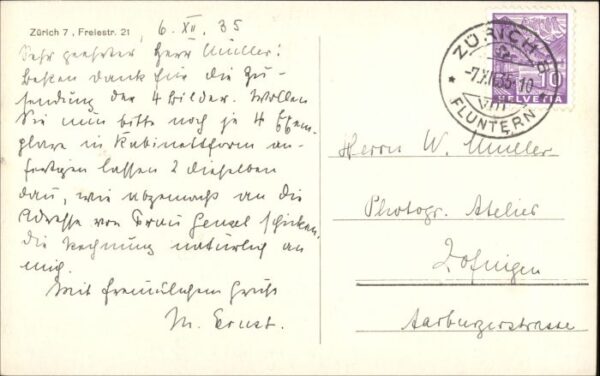 Zürich 7, Freiestr. 21
6. XII. 35
Sehr geehrter Herr Müller!
Besten Dank für die Zu-
sendung der 4 Bilder. Wollen
Sie nun bitte noch je 4 Exem-
plare in Kabinettform an-
fertigen lassen & dieselben
dann, wie abgemacht an die
Adresse von Frau Gensel schicken.
die Rechnung natürlich an
mich.
Mit freundlichem Gruss
M. Ernst.
ZÜRICH 8
-7.XII.35-10
VIII
FLUNTERN
10
HELVETIA
Herrn W. Müller
Photogr. Atelier
Zofingen
Aarburgerstrasse